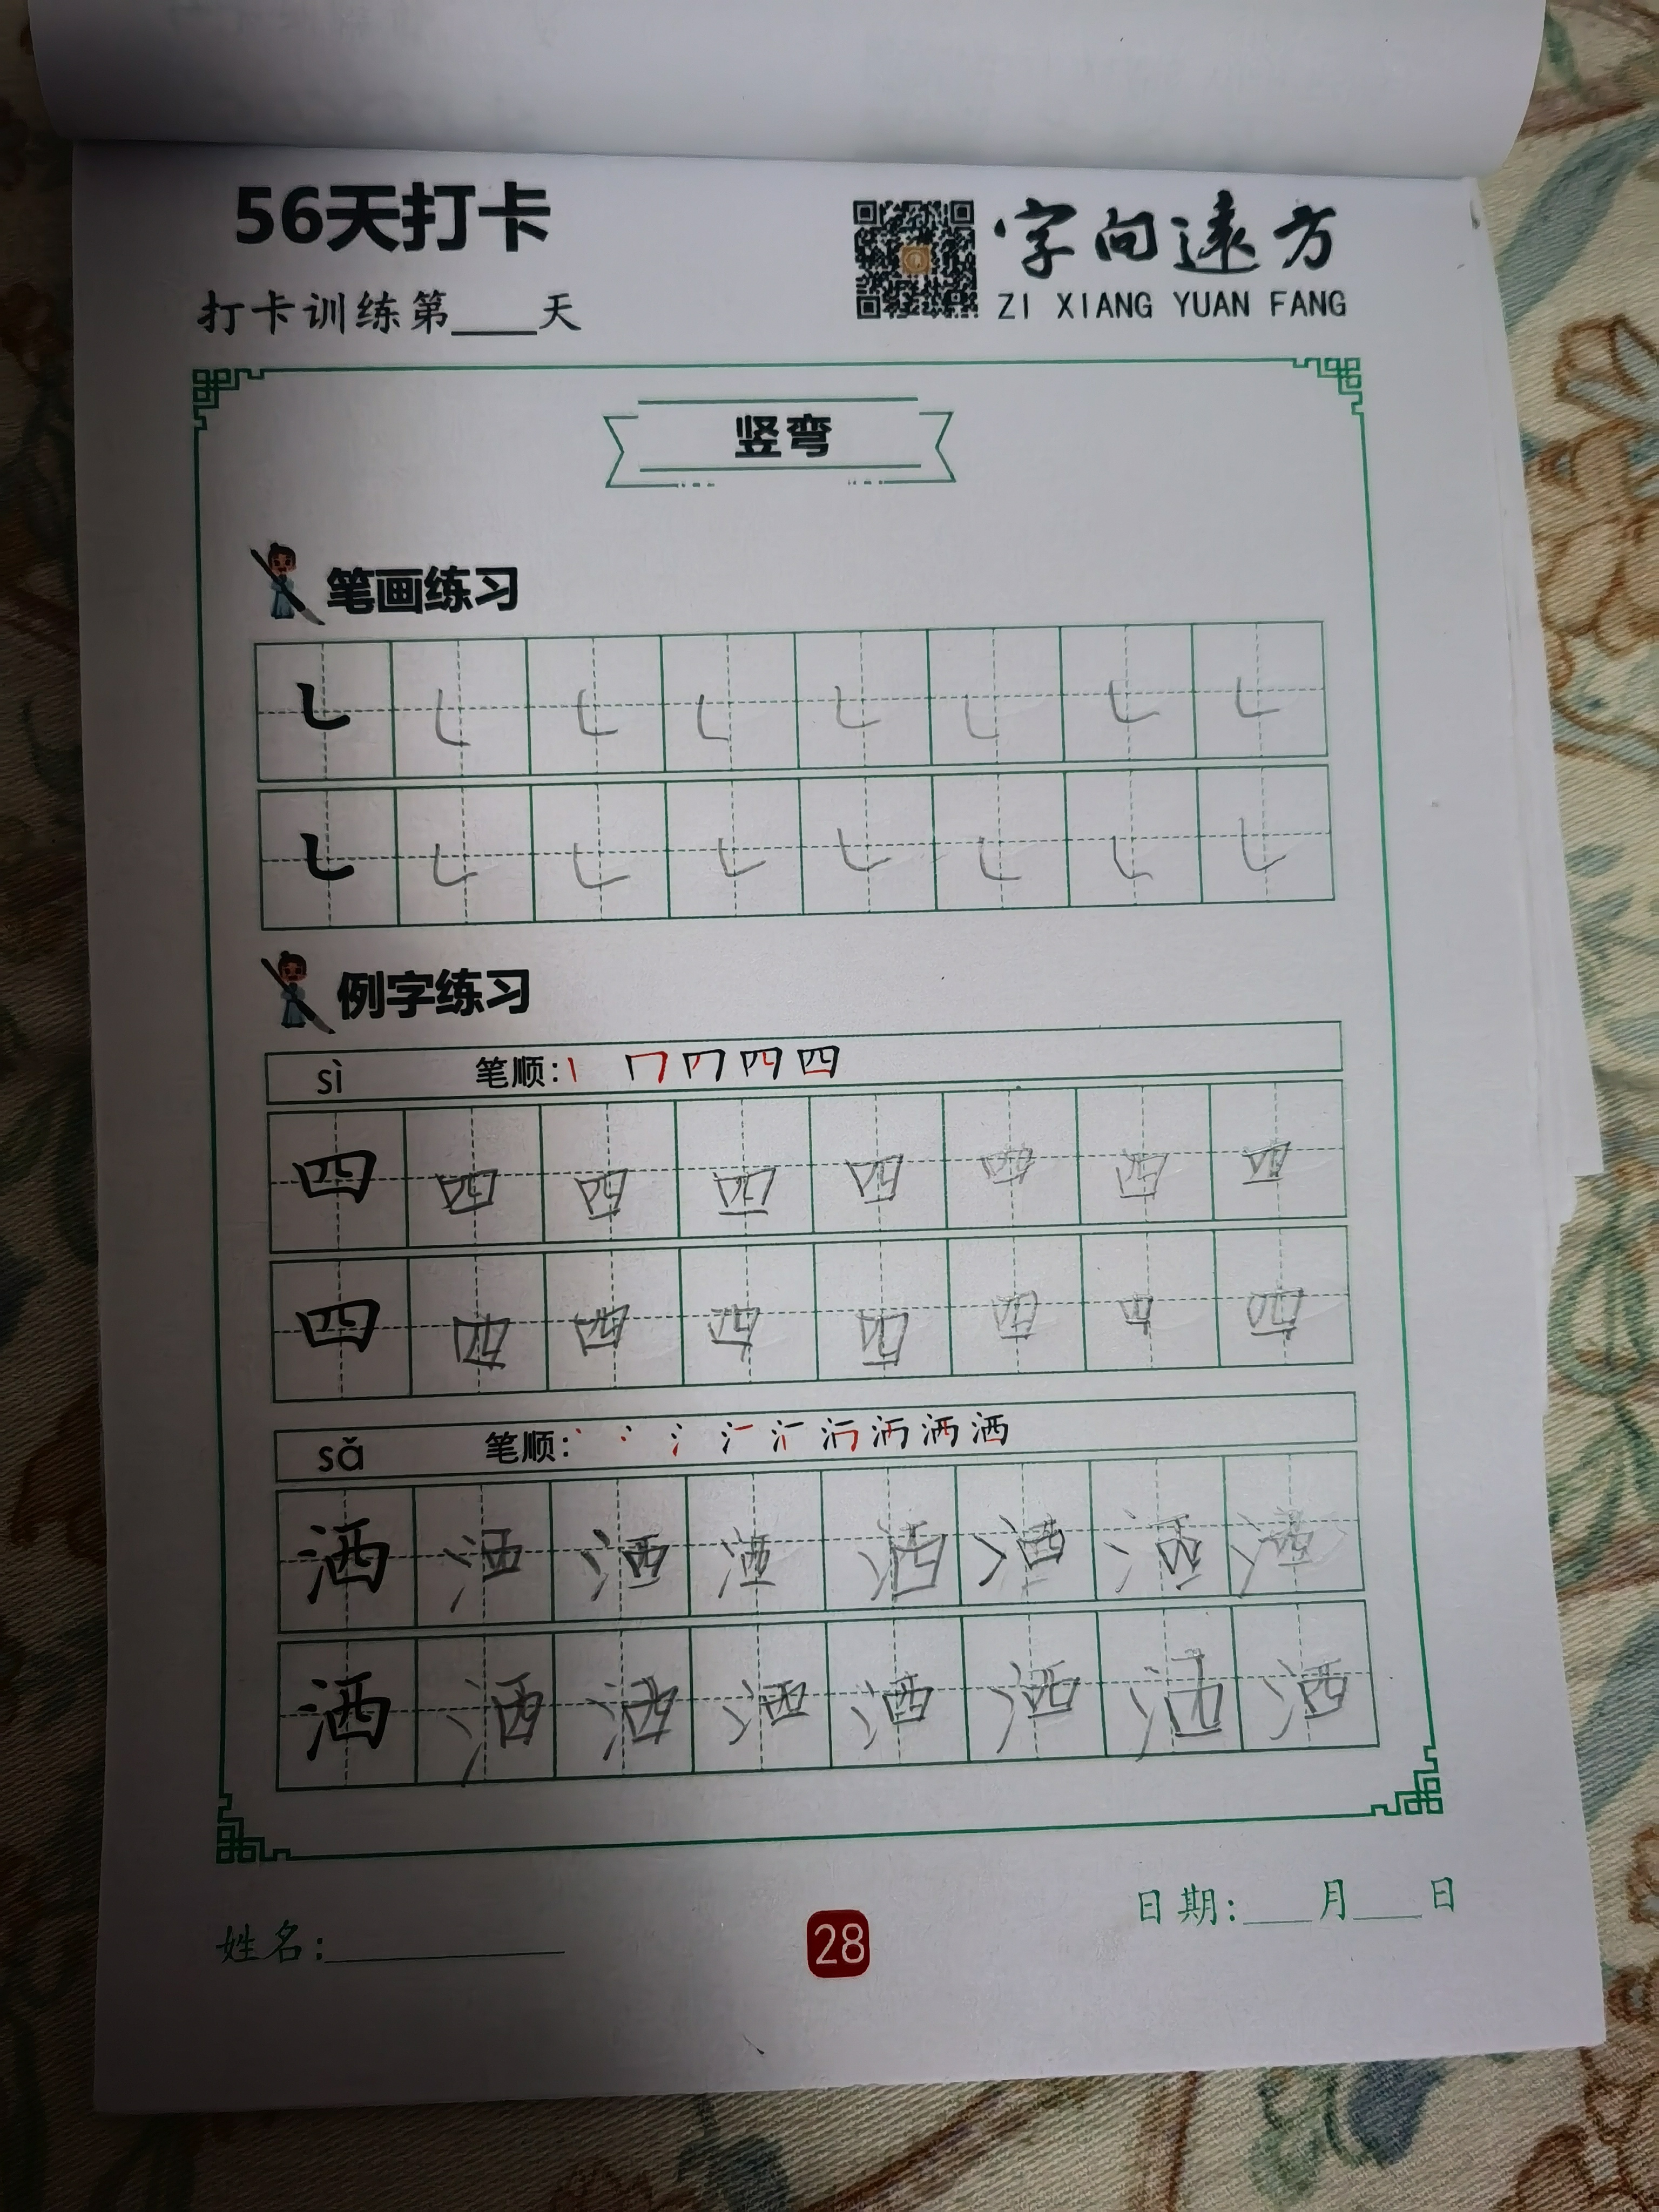 56天打卡
字向遠方
ZI XIANG YUAN FANG
打卡训练第___天
竖弯
笔画练习
㇄ ㇄ ㇄ ㇄ ㇄ ㇄ ㇄ ㇄
㇄ ㇄ ㇄ ㇄ ㇄ ㇄ ㇄ ㇄
例字练习
sì 笔顺:丨 冂 四
四 四 四 四 四 四 四 四
四 四 四 四 四 四 四 四
sǎ 笔顺: 丶 冫 氵 洒
洒 洒 洒 洒 洒 洒 洒 洒
洒 洒 洒 洒 洒 洒 洒 洒
姓名:________
28
日期:___月___日